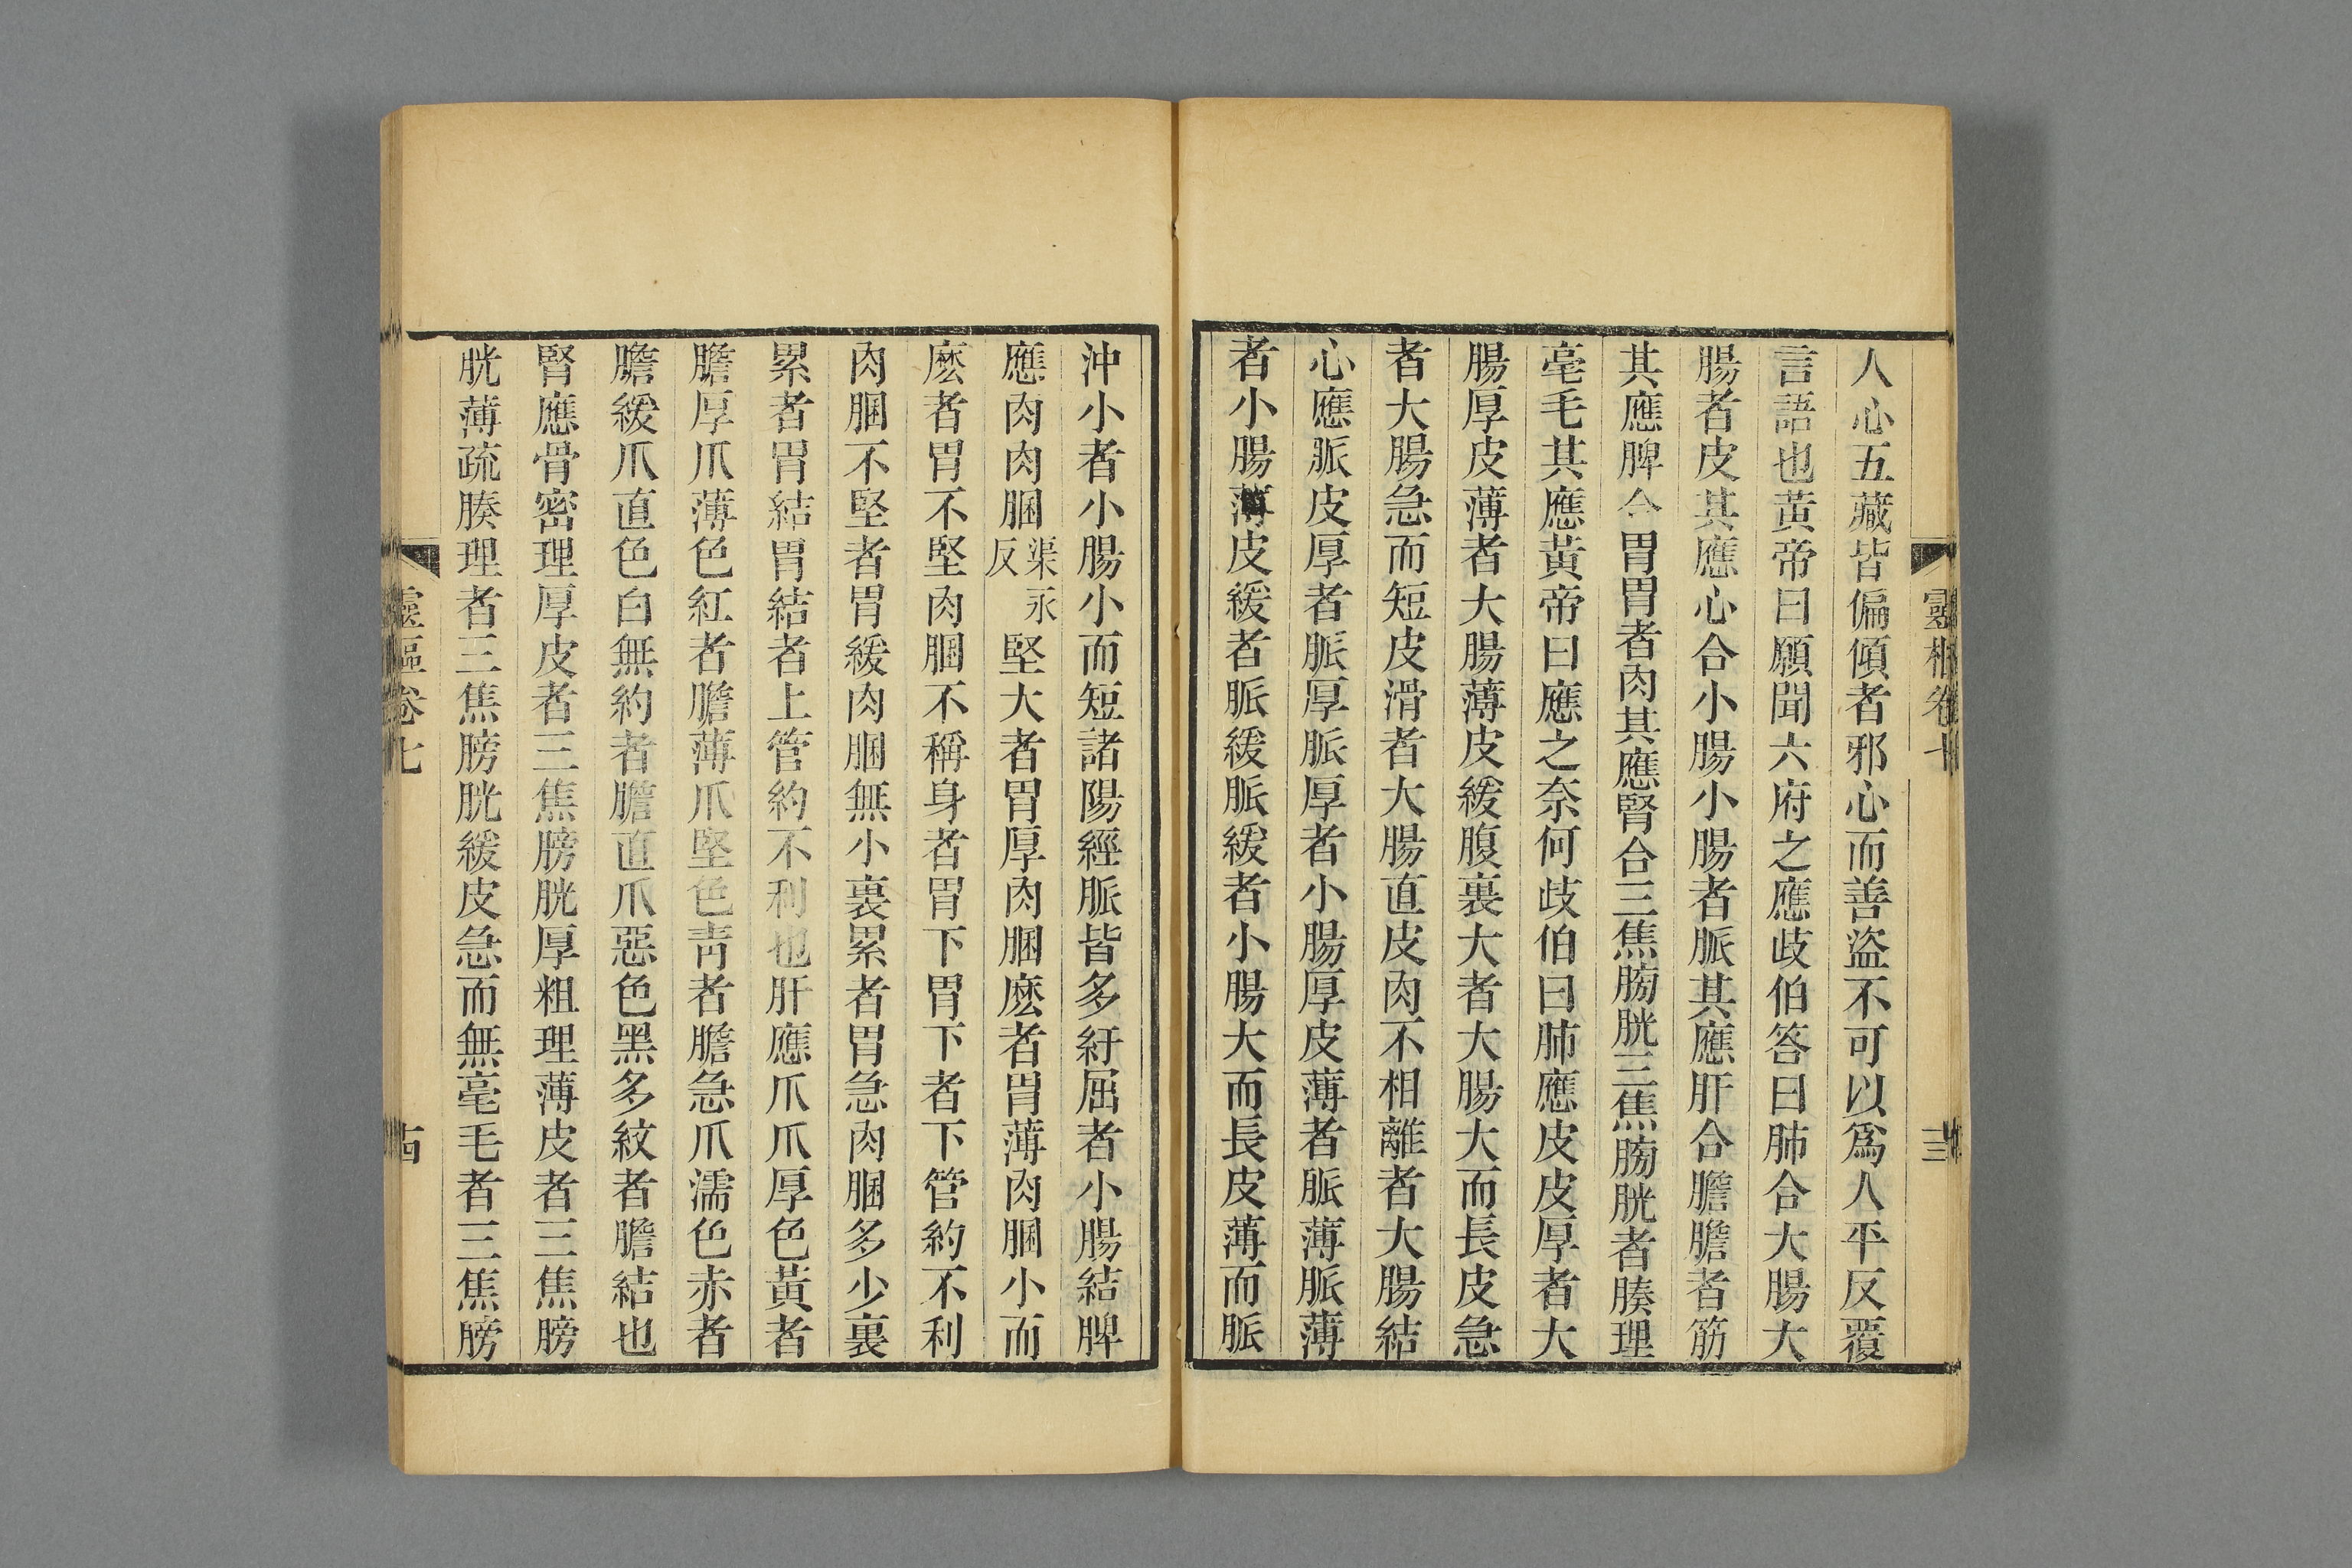 人心五藏皆偏傾者邪心而善盜不可以爲人平反覆
言語也黃帝曰願聞六府之應歧伯答曰肺合大腸大
腸者皮其應心合小腸小腸者脈其應肝合膽膽者筋
其應脾合胃胃者肉其應腎合三焦膀胱三焦膀胱者腠理
毫毛其應黃帝曰應之奈何歧伯曰肺應皮皮厚者大
腸厚皮薄者大腸薄皮緩腹裏大者大腸大而長皮急
者大腸急而短皮滑者大腸直皮肉不相離者大腸結
心應脈皮厚者脈厚脈厚者小腸厚皮薄者脈薄脈薄
者小腸薄皮緩者脈緩脈緩者小腸大而長皮薄而脈
靈樞卷
沖小者小腸小而短諸陽經脈皆多紆屈者小腸結脾
應肉肉䐃渠永反堅大者胃厚肉䐃麽者胃薄肉䐃小而
麽者胃不堅肉䐃不稱身者胃下胃下者下管約不利
肉䐃不堅者胃緩肉䐃無小裏累者胃急肉䐃多少裏
累者胃結胃結者上管約不利也肝應爪爪厚色黃者
膽厚爪薄色紅者膽薄爪堅色靑者膽急爪濡色赤者
膽緩爪直色白無約者膽直爪惡色黑多紋者膽結也
腎應骨密理厚皮者三焦膀胱厚粗理薄皮者三焦膀
胱薄疏腠理者三焦膀胱緩皮急而無毫毛者三焦膀
靈樞卷七